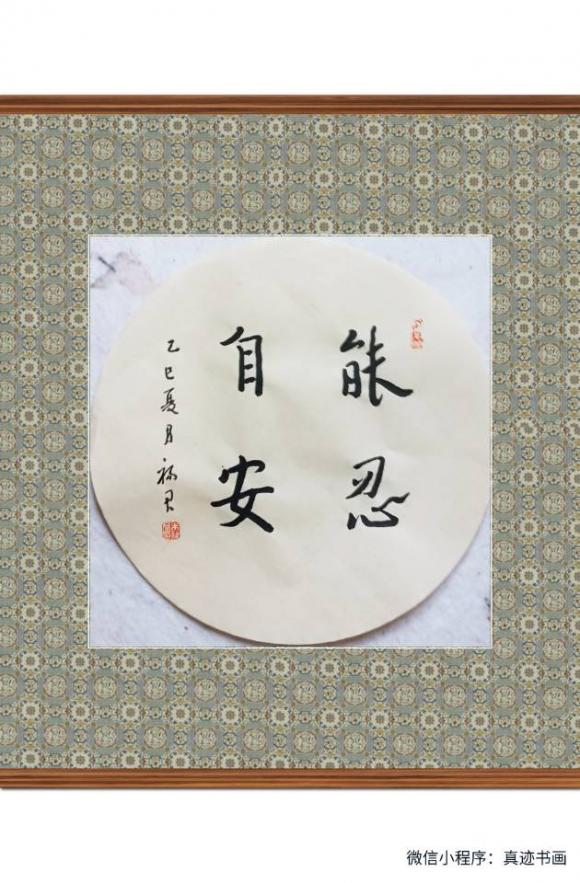 能忍
自安
乙巳夏月
微信小程序：真迹书画